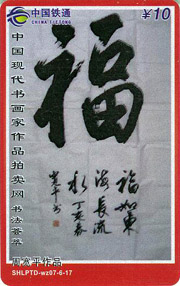 中国铁通
CHINA TIETONG
¥10
中国现代书画家作品拍卖网书法荟萃
福
福如东
海长流
水
丁亥春
宽平书
周宽平作品
SHLPTD-wz07-6-17